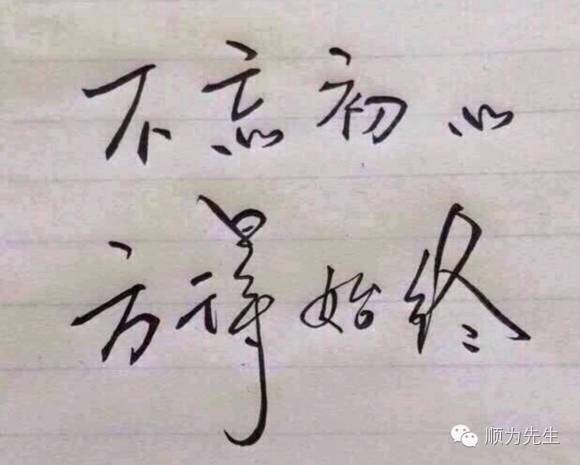 不忘初心
方得始终
顺为先生